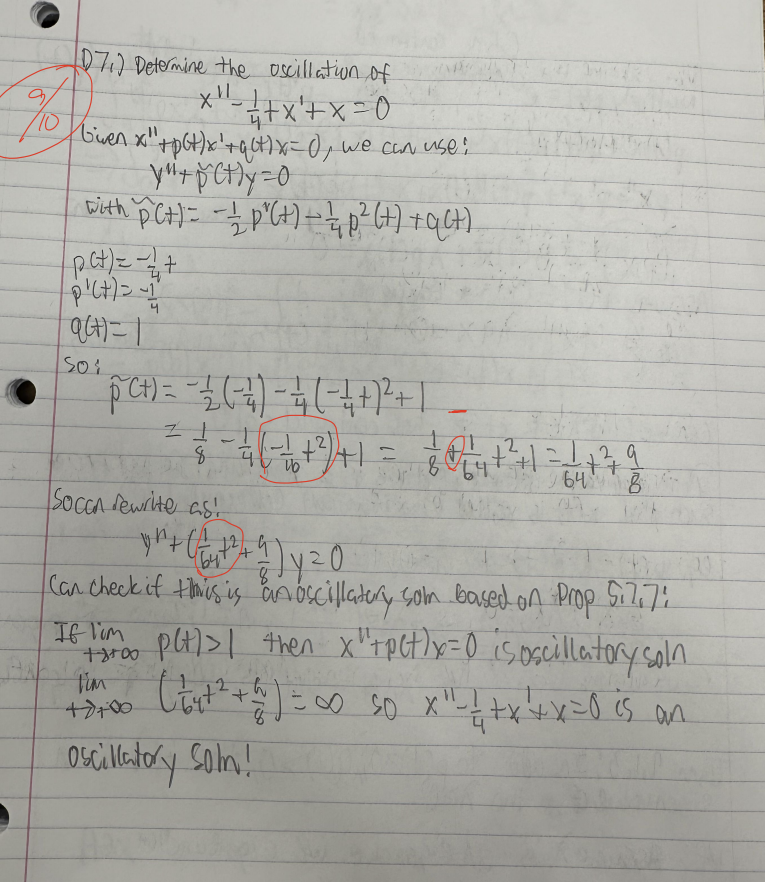 D7.) Determine the oscillation of
x'' - 1/4 t x' + x = 0
9/10
Given x'' + p(t)x' + q(t)x = 0, we can use:
y'' + p̃(t)y = 0
with p̃(t) = -1/2 p'(t) - 1/4 p²(t) + q(t)
p(t) = -1/4 t
p'(t) = -1/4
q(t) = 1
So:
p̃(t) = -1/2 (-1/4) - 1/4 (-1/4 t)² + 1
= 1/8 - 1/4 (-1/16 t²) + 1 = 1/8 + 1/64 t² + 1 = 1/64 t² + 9/8
−
So can rewrite as:
y'' + (1/64 t² + 9/8) y = 0
Can check if this is an oscillatory soln based on Prop 5.7.7:
If lim t→+∞ p(t) > 1 then x'' + p(t)x = 0 is oscillatory soln
lim t→+∞ (1/64 t² + 9/8) = ∞ so x'' - 1/4 t x' + x = 0 is an
oscillatory soln!